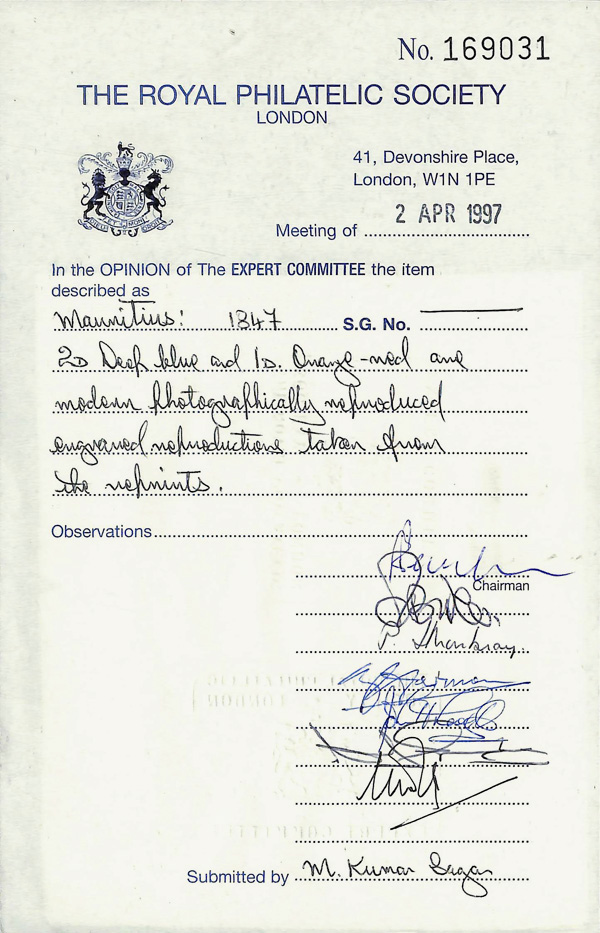 No. 169031
THE ROYAL PHILATELIC SOCIETY
LONDON
41, Devonshire Place,
London, W1N 1PE
2 APR 1997
Meeting of
In the OPINION of The EXPERT COMMITTEE the item
described as
Mauritius: 1847 S.G. No.
2D Deep blue and 1D. Orange-red are
modern photographically reproduced
engraved reproductions taken from
the reprints.
Observations
Chairman
Submitted by M. Kumar Sagar